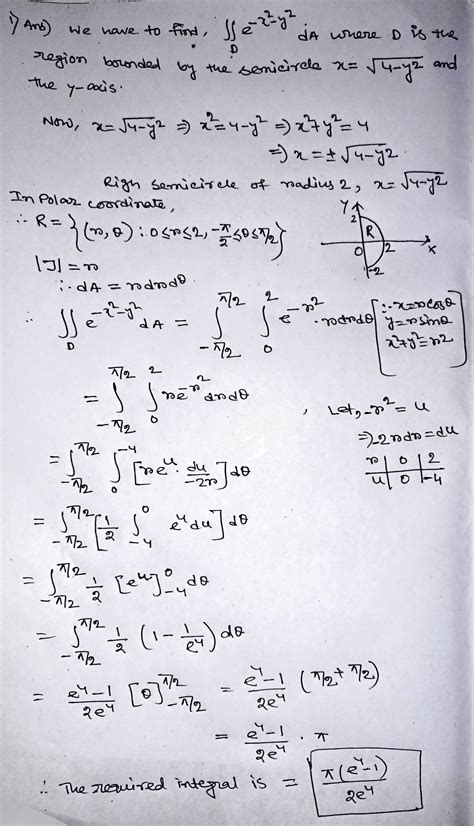 i) Ans) We have to find, ∬_D e^{-x²-y²} dA where D is the
region bounded by the semicircle x= √4-y² and
the y-axis.
Now, x=√4-y² ⇒ x²=4-y² ⇒ x²+y²=4
⇒ x=±√4-y²
Righ semicircle of radius 2, x=√4-y²
In Polar coordinate,
∴ R= {(r,θ): 0≤r≤2, -π/2≤θ≤π/2}
Y
2
R
0
2
X
-2
|J|=r
∴ dA = rdrdθ
∴ ∬_D e^{-x²-y²} dA = ∫_{-π/2}^{π/2} ∫_0^2 e^{-r²} · rdrdθ [∵ x=rcosθ
y=rsinθ
x²+y²=r2
= ∫_{-π/2}^{π/2} ∫_0^2 re^{-r²} drdθ , Let, -r²=u
⇒ -2rdr=du
r | 0 | 2
u | 0 | -4
= ∫_{-π/2}^{π/2} ∫_0^{-4} [re^u · du/-2r] dθ
= ∫_{-π/2}^{π/2} [1/2 ∫_{-4}^0 e^u du] dθ
= ∫_{-π/2}^{π/2} 1/2 [e^u]_{-4}^0 dθ
= ∫_{-π/2}^{π/2} 1/2 (1 - 1/e⁴) dθ
= e⁴-1/2e⁴ [θ]_{-π/2}^{π/2} = e⁴-1/2e⁴ (π/2+π/2)
= e⁴-1/2e⁴ · π
∴ The required integral is = π(e⁴-1)/2e⁴